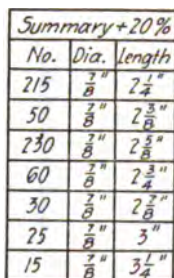 Summary + 20%
No. Dia. Length
215 7/8" 2 1/4"
50 7/8" 2 3/8"
230 7/8" 2 5/8"
60 7/8" 2 3/4"
30 7/8" 2 7/8"
25 7/8" 3"
15 7/8" 3 1/4"